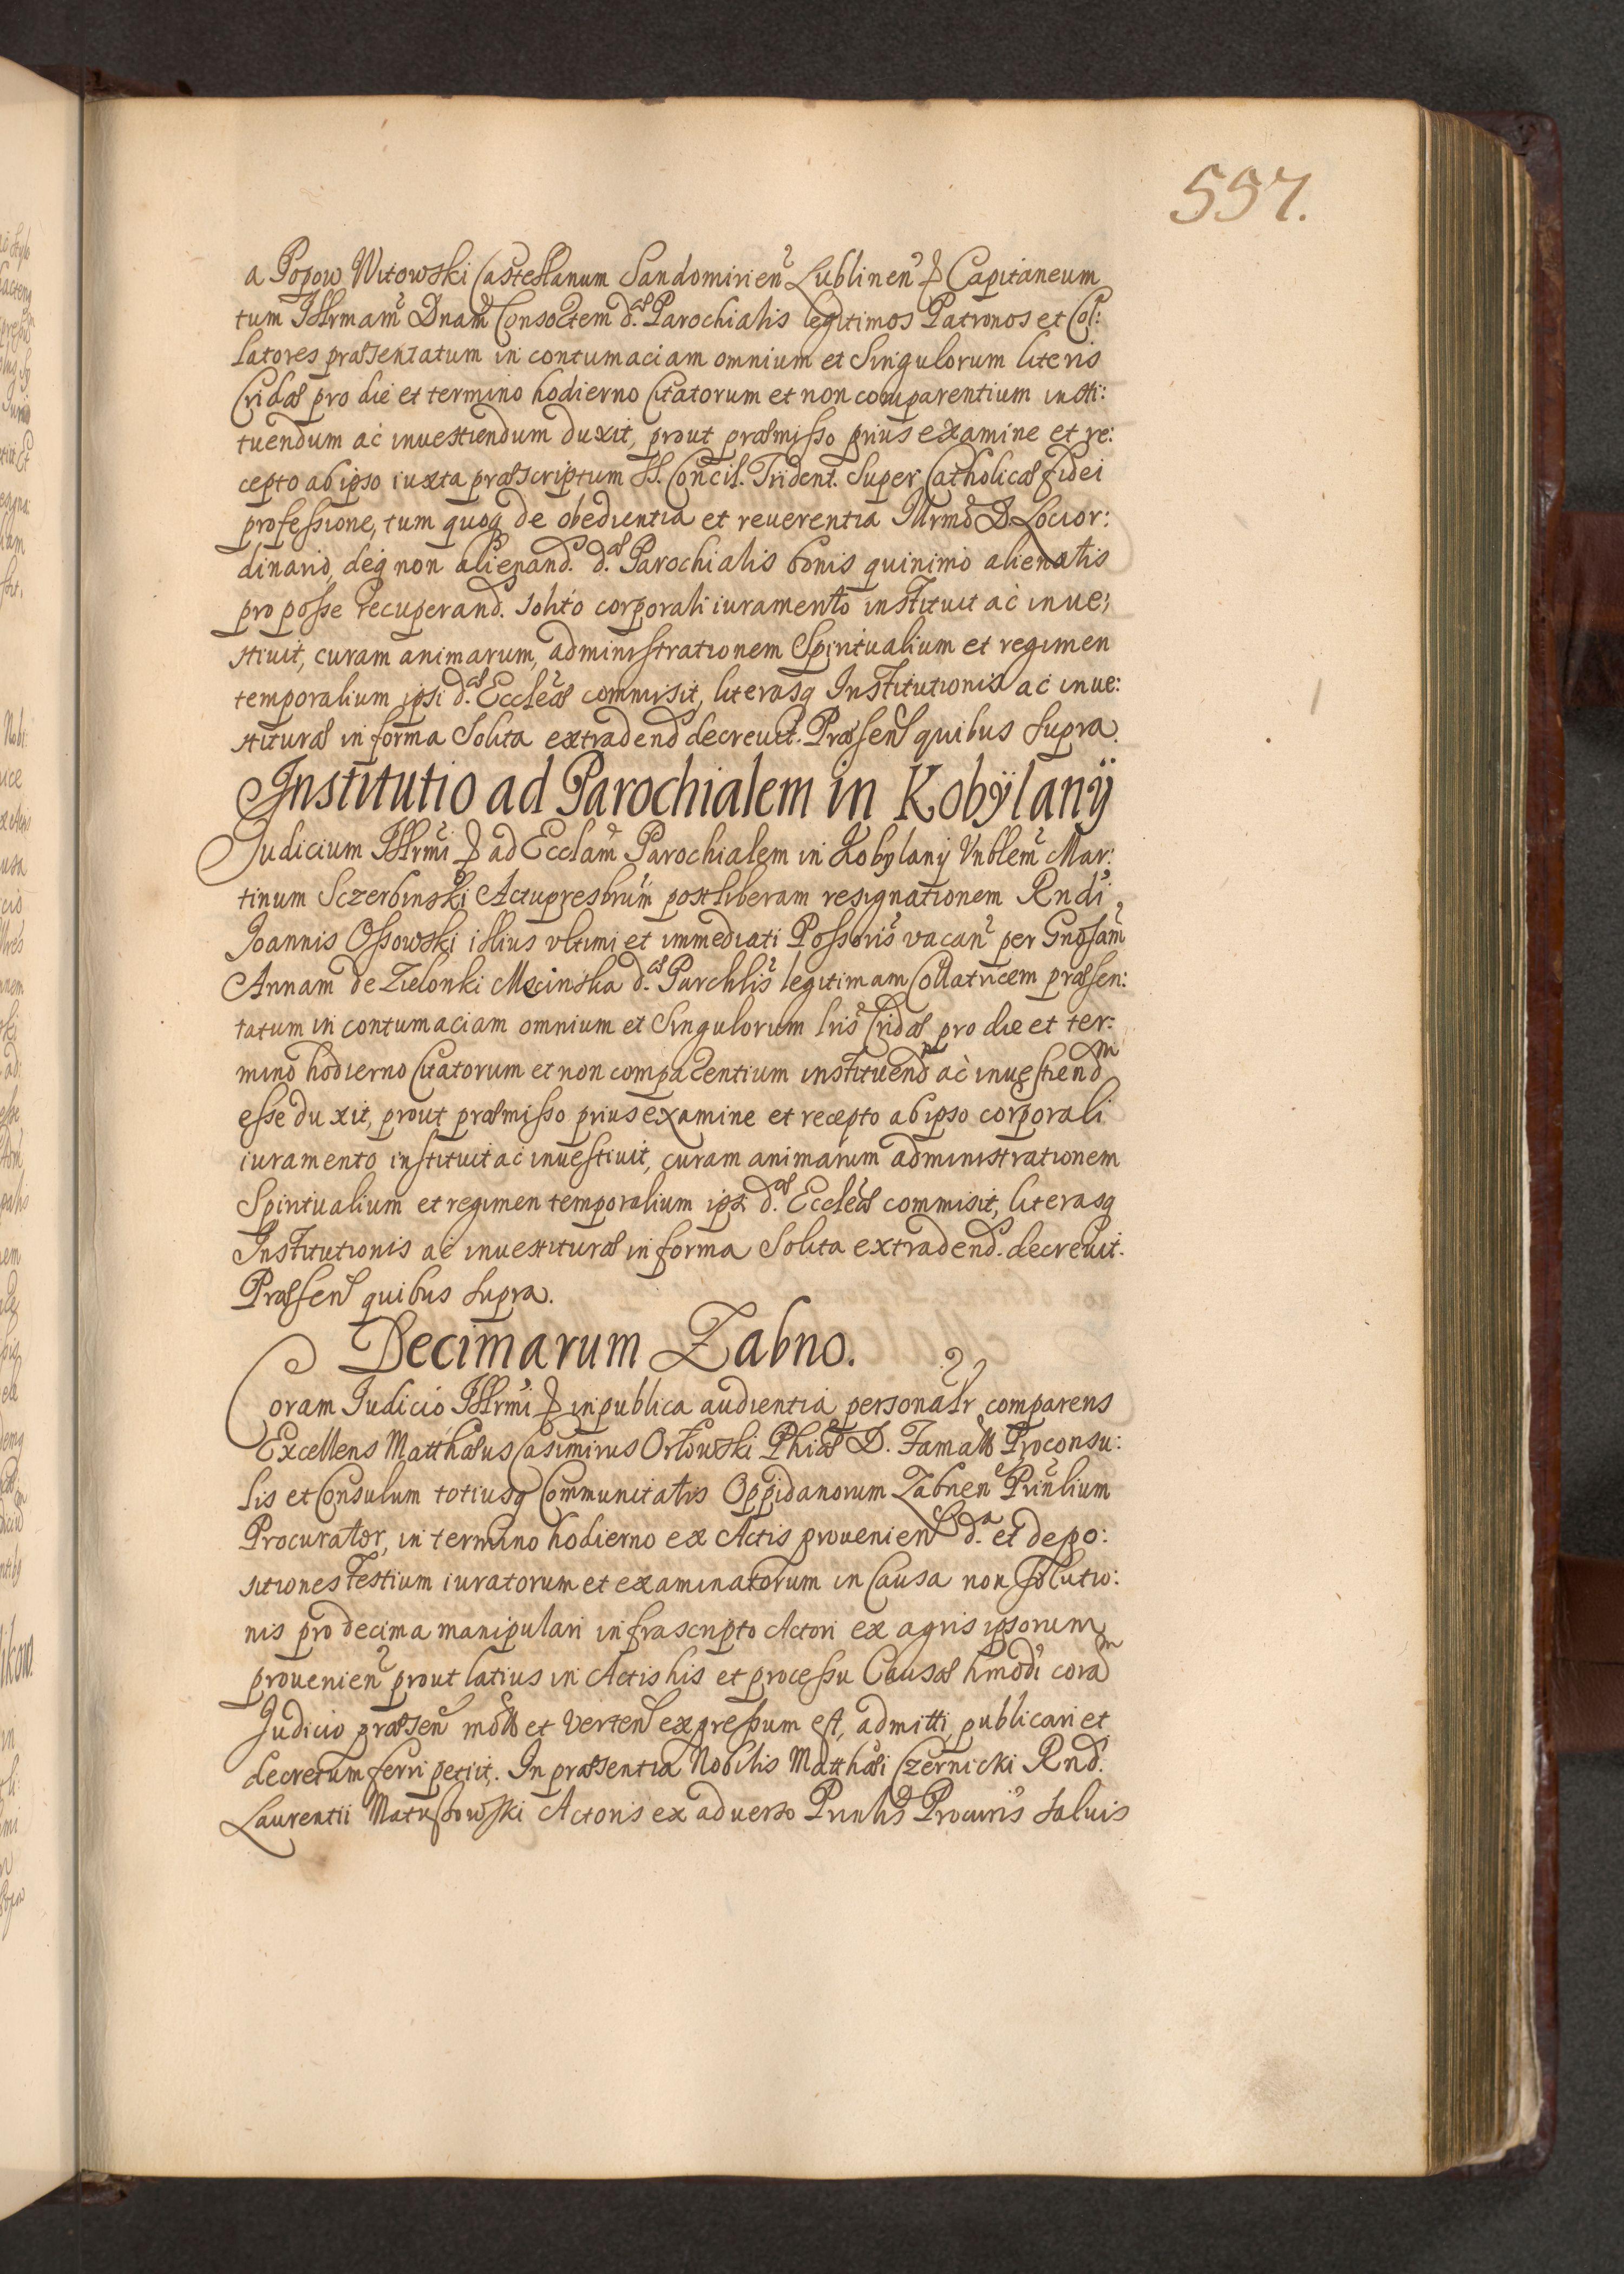 557.
a Popow Witowski Castellanum Sandomirien̄ Lublinen̄ & Capitaneum
tum Illrmam Dnam Consortem d. æ Parochialis legitimos Patronos et Col:
latores præsentatum in contumaciam omnium et singulorum literis
Cridæ pro die et termino hodierno Citatorum et non comparentium insti:
tuendum ac inuestiendum duxit, prout præmisso prius examine et re:
cepto ab ipso iuxta præscriptum SS. Concil. Trident. super Catholicæ fidei
professione, tum quoq de obedientia et reuerentia Illrmo D. Loci or:
dinario, deq non alienand. d. æ Parochialis bonis quinimo alienatis
pro posse recuperand. solito corporali iuramento instituit ac inue:
stiuit, curam animarum, administrationem Spiritualium et regimen
temporalium ipsi d. æ Eccleæ commisit, literasq Institutionis ac inue:
stituræ in forma solita extradend decreuit. Præsen quibus supra.
Institutio ad Parochialem in Kobÿlanÿ
Judicium Illrmi & ad Ecclam Parochialem in Kobylanÿ Vnblem Mar:
tinum Sczerbinski Actupresbrum post liberam resignationem Rndi
Joannis Ossowski illius vltimi et immediati Possoris vacan per Gnosam
Annam de Zielonki Mecinska d. æ Parchlis legitimam Collatricem præsen:
tatum in contumaciam omnium et singulorum lris Cridæ pro die et ter:
mino hodierno Citatorum et non comparentium instituend ac inuestiend m
esse duxit, prout præmisso prius examine et recepto ab ipso corporali
iuramento instituit ac inuestiuit, curam animarum administrationem
Spiritualium et regimen temporalium ipsi d. æ Eccleæ commisit, literasq
Institutionis ac inuestituræ in forma solita extradend. decreuit.
Præsen quibus supra.
Decimarum Zabno.
Coram Judicio Illrmi & in publica audientia personalr comparens
Excellens Matthæus Casimirus Orłowski Phiæ D. Famatt Proconsu:
lis et Consulum totiusq Communitatis Oppidanorum Zabnen Prinlium
Procurator, in termino hodierno ex Actis prouenien d. a et depo:
sitiones Testium iuratorum et examinatorum in Causa non solutio:
nis pro decima manipulari infrascripto Actori ex agris ipsorum
prouenien prout latius in Actis his et processu Causæ hmodi cora m
Judicio præsen et verten expressum est, admitti, publicari et
decretum ferri petiit. In præsentia Nobilis Matthæi Czernicki Rnd.
Laurentii Matussowski Actoris ex aduerso Prinlis Procuris saluis